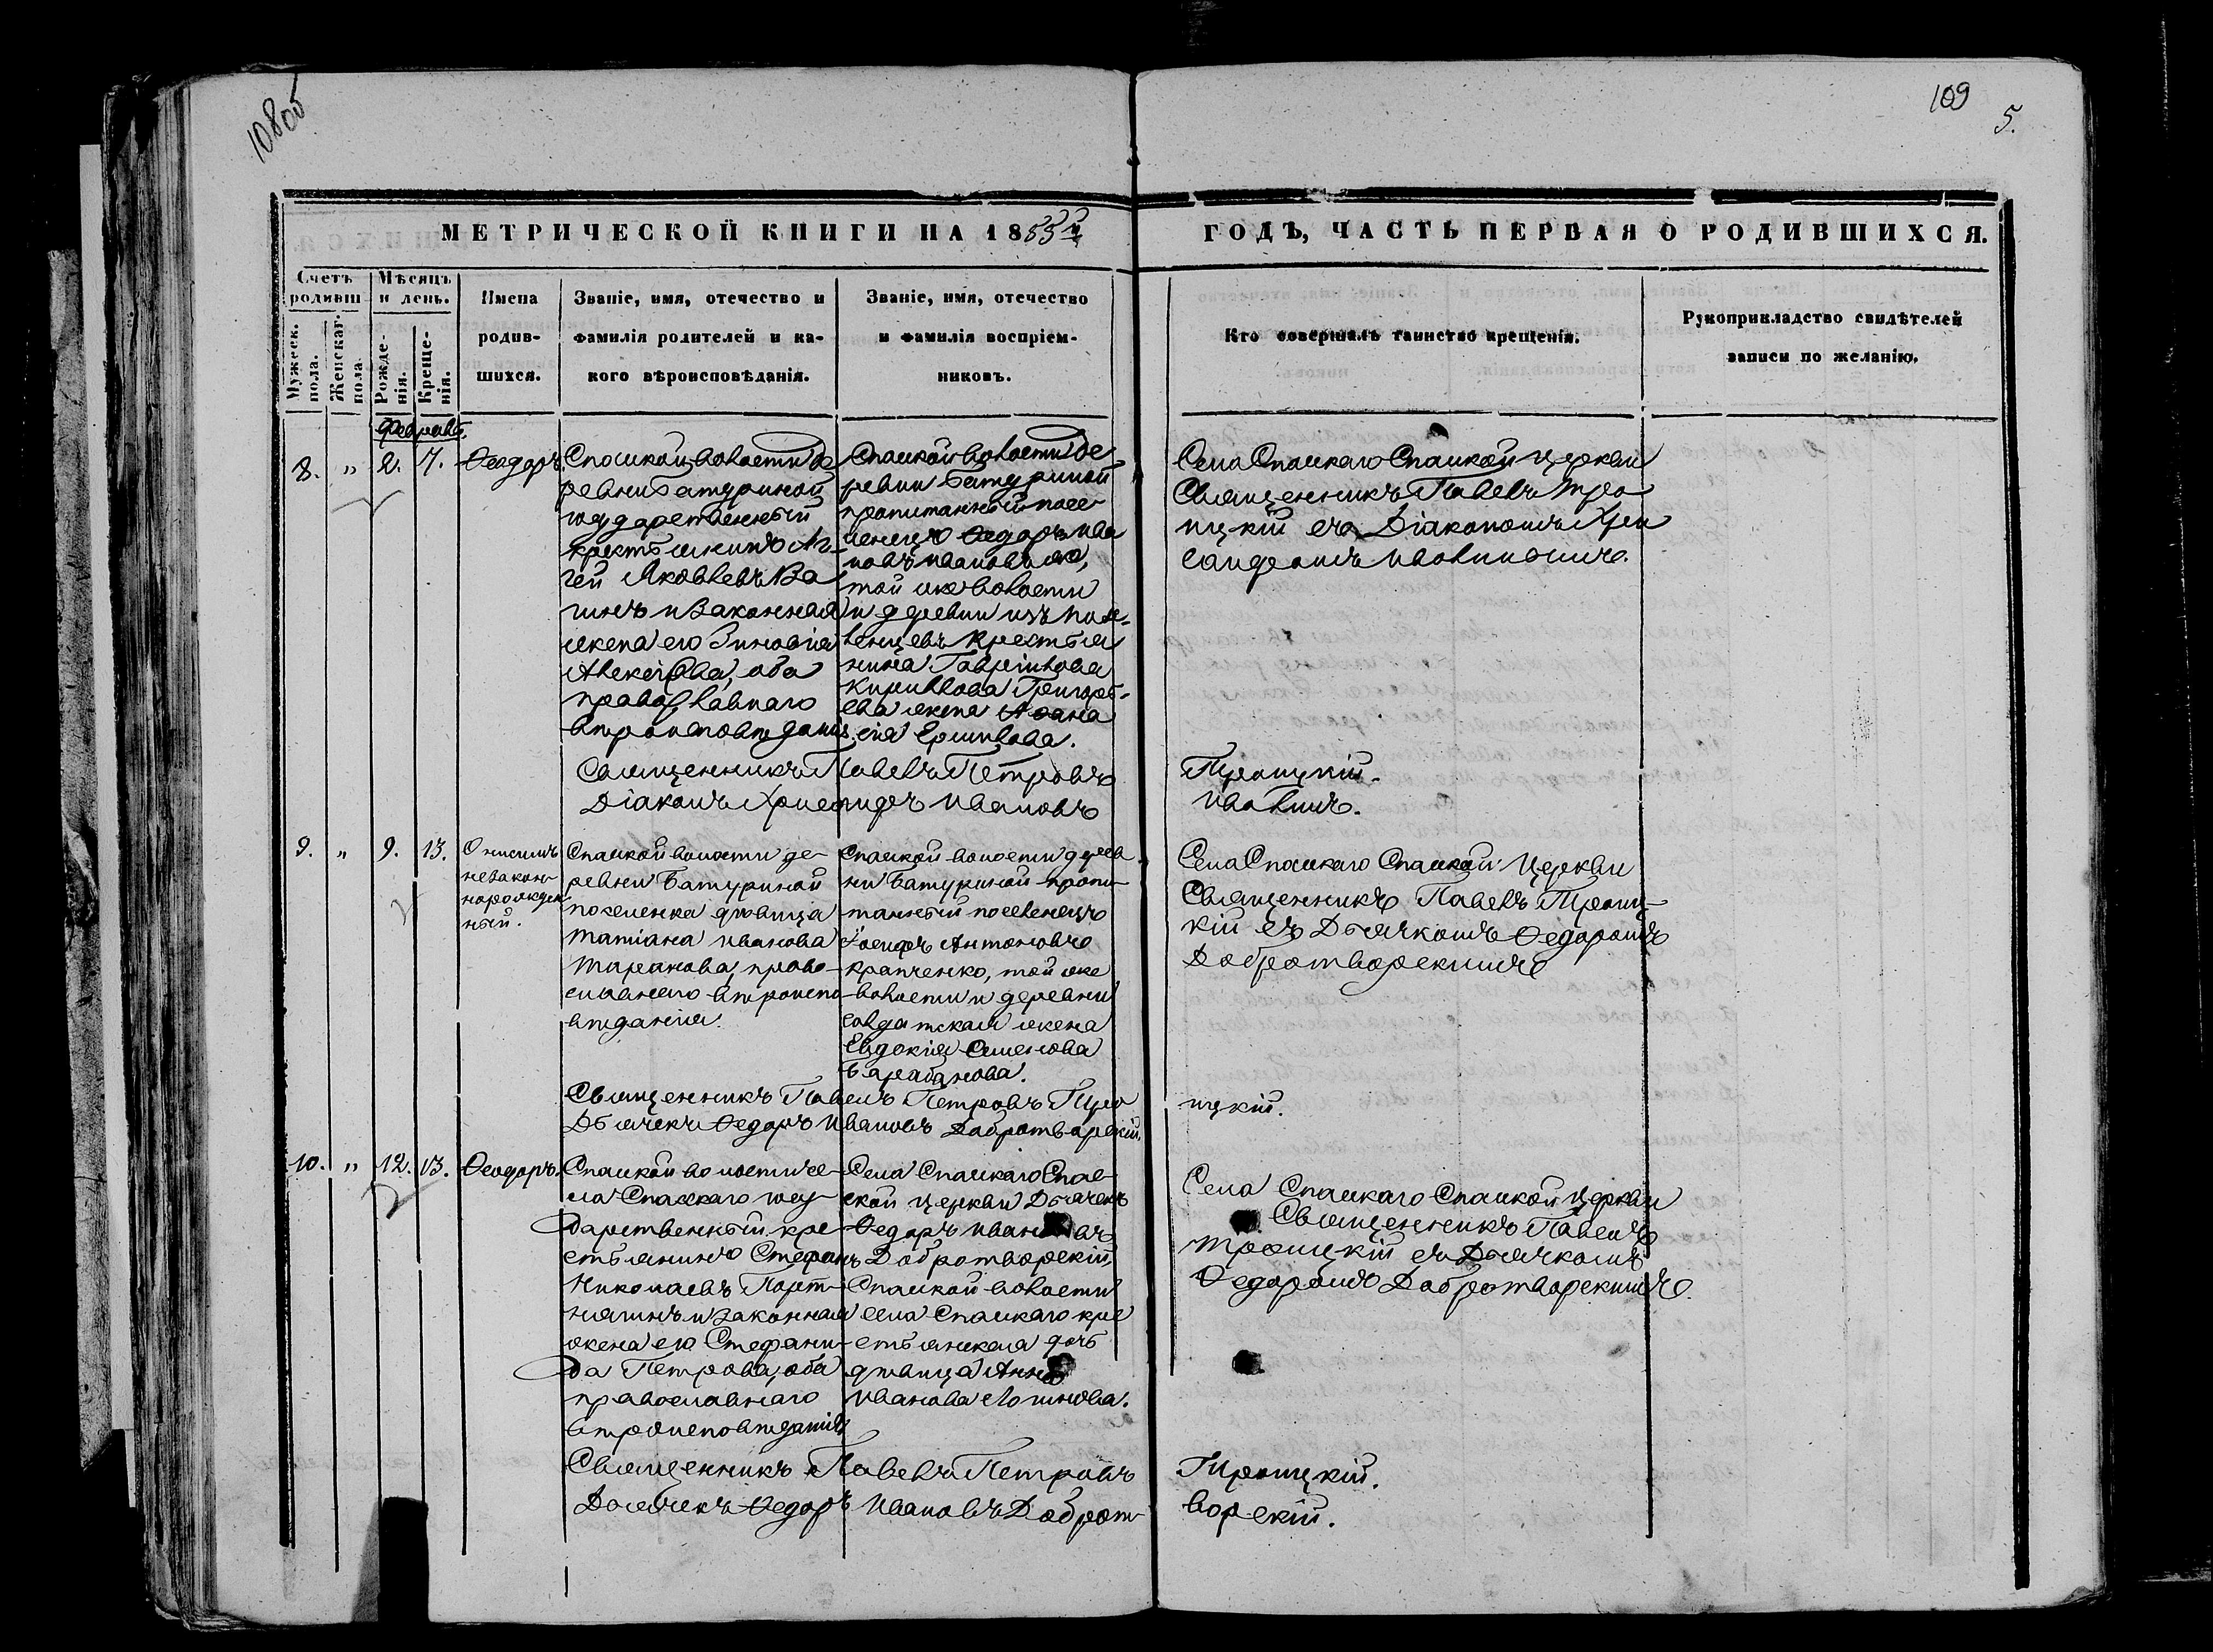 108об
109
5.
МЕТРИЧЕСКОЙ КНИГИ НА 1855й
ГОДЪ, ЧАСТЬ ПЕРВАЯ О РОДИВШИХСЯ.
Счетъ родивш
Мужеск. пола.
Женскаг. пола
Мѣсяцъ и день.
Рожденія.
Крещенія.
Имена
родив-
шихся.
Званіе, имя, отечество и
фамилія родителей и ка-
кого вѣроисповѣданія.
Званіе, имя, отечество
и фамилія воспріем-
никовъ.
Кто совершалъ таинство крещенія.
Рукоприкладство свидѣтелей
записи по желанію.
Февраль.
8. „ 2. 7. Ѳеодоръ.
Спаской волости де
ревни Батуриной
государственный
крестьянинъ
Яковлевъ
и законная
жена его Зиновія
Алексѣева, оба
православнаго
вѣроисповѣданія.
Спаской волости де
ревни Батуриной
пропитанный посе
ленецъ Ѳедоръ Ива
новъ Ивановъ,
той же волости
и деревни изъ посе-
ленцевъ крестья
нина Гавріилова
Кирилова Григорь-
ева жена Аѳана
сія Ермилова.
Села Спаскаго Спаской церкви
Священникъ Павелъ Тро
ицкій съ Діакономъ Хри
сандромъ Иволинымъ.
Священникъ Павелъ Петровъ Троицкій.
Діаконъ Хрисандръ Ивановъ Иволинъ.
9. „ 9. 13.
Онисимъ
незакон-
норожден
ный.
Спаской волости де-
ревни Батуриной
поселенка дѣвица
Татіана Иванова
Таранова, право-
славнаго вѣроиспо-
вѣданія.
Спаской волости дерев
ни Батуриной пропи-
танный поселенецъ
Антоновъ
Крапченко, той же
волости и деревни
солдатская жена
Евдокія Семенова
Барабанова.
Села Спаскаго Спаской Церкви
Священникъ Павелъ Троиц-
кій съ Дьячкомъ Ѳедоромъ
Добротворскимъ
Священникъ Павелъ Петровъ Троицкій.
Дьячекъ Ѳедоръ Ивановъ Добротворскій.
10. „ 12. 13. Ѳеодоръ.
Спаской волости се-
ла Спаскаго госу-
дарственный кре
стьянинъ Стефанъ
Николаевъ Порт-
нягинъ и законная
жена его Стефани-
да Петрова, оба
православнаго
вѣроисповѣданія
Села Спаскаго Спас-
ской церкви Дьячекъ
Ѳедоръ Ивановъ
Добротворскій,
Спаской волости
села Спаскаго кре
стьянская дочь
дѣвица Анна
Иванова Логинова.
Села Спаскаго Спаской церкви
Священникъ Павелъ
Троицкій съ Дьячкомъ
Ѳедоромъ Добротворскимъ.
Священникъ Павелъ Петровъ Троицкій.
Дьячекъ Ѳедоръ Ивановъ Добротворскій.